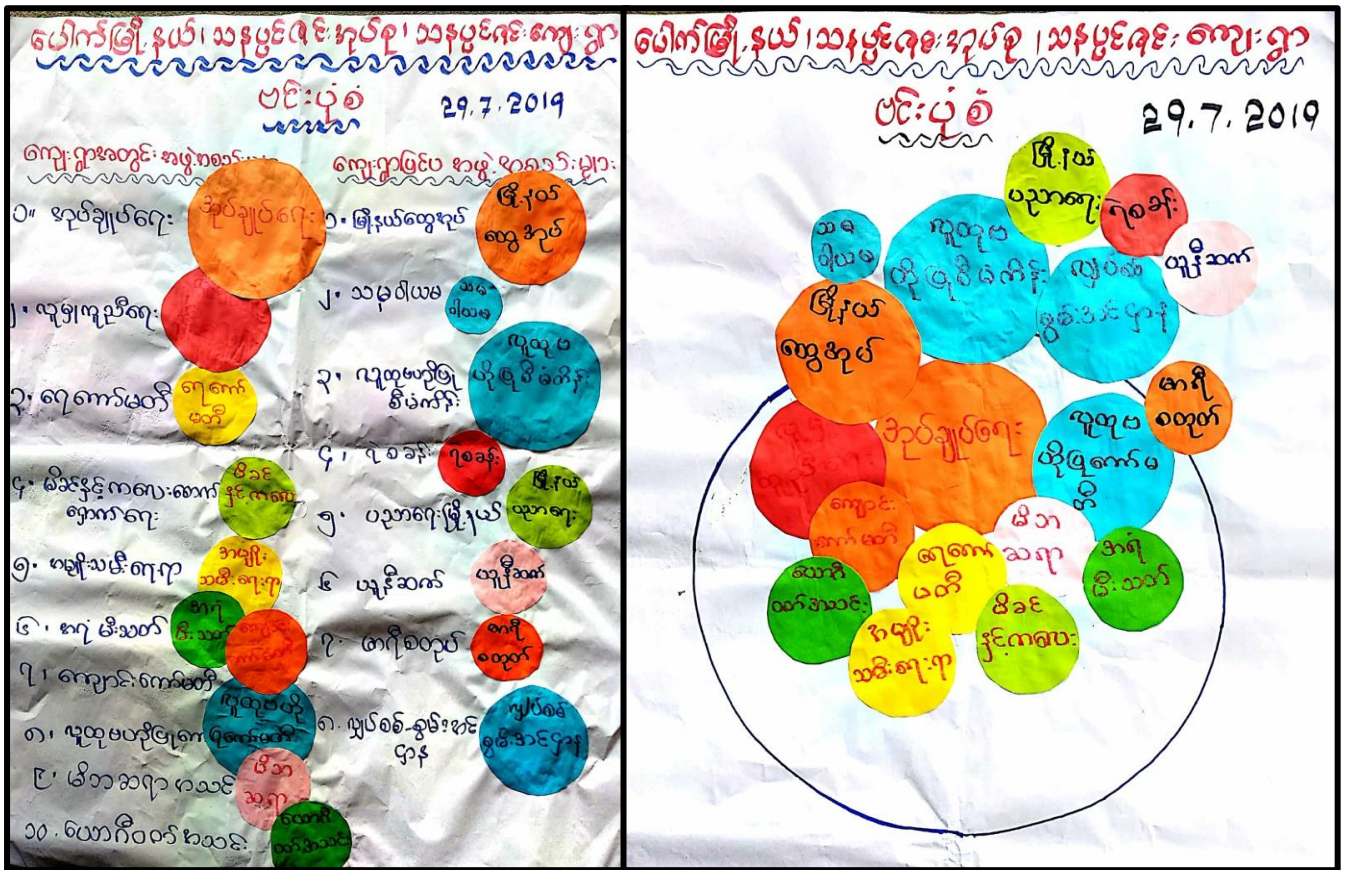 ပေါက်မြို့နယ်၊သနပ္ပင်ရင်းအုပ်စု၊သနပ္ပင်ရင်းကျေးရွာ
ဗင်းပုံစံ 29.7.2019
ကျေးရွာအတွင်းအဖွဲ့အစည်း
၁။ အုပ်ချုပ်ရေး
အုပ်ချုပ်ရေး
၂. လူမှုကူညီရေး
၃. ရေကော်မတီ
ရေကော်
မတီ
၄. မိခင်နှင့်ကလေးစောင့်
ရှောက်ရေး
မိခင်
နှင့်ကလေး
၅. အမျိုးသမီးရေးရာ
အမျိုး
သမီးရေးရာ
၆. အရံမီးသတ်
အရံ
မီးသတ်
၇. ကျောင်းကော်မတီ
၈. လူထုဗဟိုပြုကော်မတီ
လူထုဗဟို
ပြုကော်မတီ
၉. မိဘဆရာအသင်း
မိဘ
ဆရာ
၁၀. ယောဂီဝတ်အသင်း
ယောဂီ
ဝတ်အသင်း
ကျေးရွာပြင်ပအဖွဲ့အစည်းများ
၁. မြို့နယ်ထွေအုပ်
မြို့နယ်
ထွေအုပ်
၂. သမဝါယမ
သမ
ဝါယမ
၃. လူထုဗဟိုပြု
စီမံကိန်း
လူထုဗ
ဟိုပြုစီမံကိန်း
၄. ရဲစခန်း
ရဲစခန်း
၅. ပညာရေးမြို့နယ်
မြို့နယ်
ပညာရေး
၆ ယူနီဆက်
ယူနီဆက်
၇. ဖာရီစတုပ်
ဖာရီ
စတုတ်
၈. လျှပ်စစ်-စွမ်းအင်
ဌာန
လျှပ်စစ်
စွမ်းအင်ဌာန
ပေါက်မြို့နယ်၊သနပ္ပင်ရင်းအုပ်စု၊သနပ္ပင်ရင်းကျေးရွာ
ဗင်းပုံစံ 29.7.2019
မြို့နယ်
ပညာရေး
ရဲစခန်း
သမ
ဝါယမ
လူထုဗ
ဟိုပြုစီမံကိန်း
လျှပ်စစ်
စွမ်းအင်ဌာန
ယူနီဆက်
မြို့နယ်
ထွေအုပ်
ဖာရီ
စတုတ်
အုပ်ချုပ်ရေး
လူထုဗ
ဟိုပြုကော်မ
တီ
ကျောင်း
ကော်မတီ
ရေကော်
မတီ
မိဘ
ဆရာ
အရံ
မီးသတ်
ယောဂီ
ဝတ်အသင်း
အမျိုး
သမီးရေးရာ
မိခင်
နှင့်ကလေး